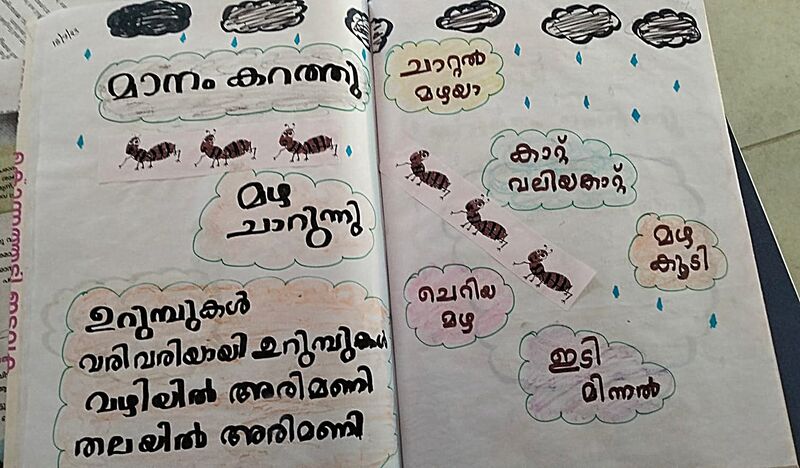 18/9/23
മാനം കറത്തു
മഴ
ചാറുന്നു
ഉറുമ്പുകൾ
വരിവരിയായി ഉറുമ്പുകൾ
വഴിയിൽ അരിമണി
തലയിൽ അരിമണി
ചാറ്റൽ
മഴയാ
കാറ്റ്
വലിയകാറ്റ്
മഴ
കൂടി
ചെറിയ
മഴ
ഇടി
മിന്നൽ